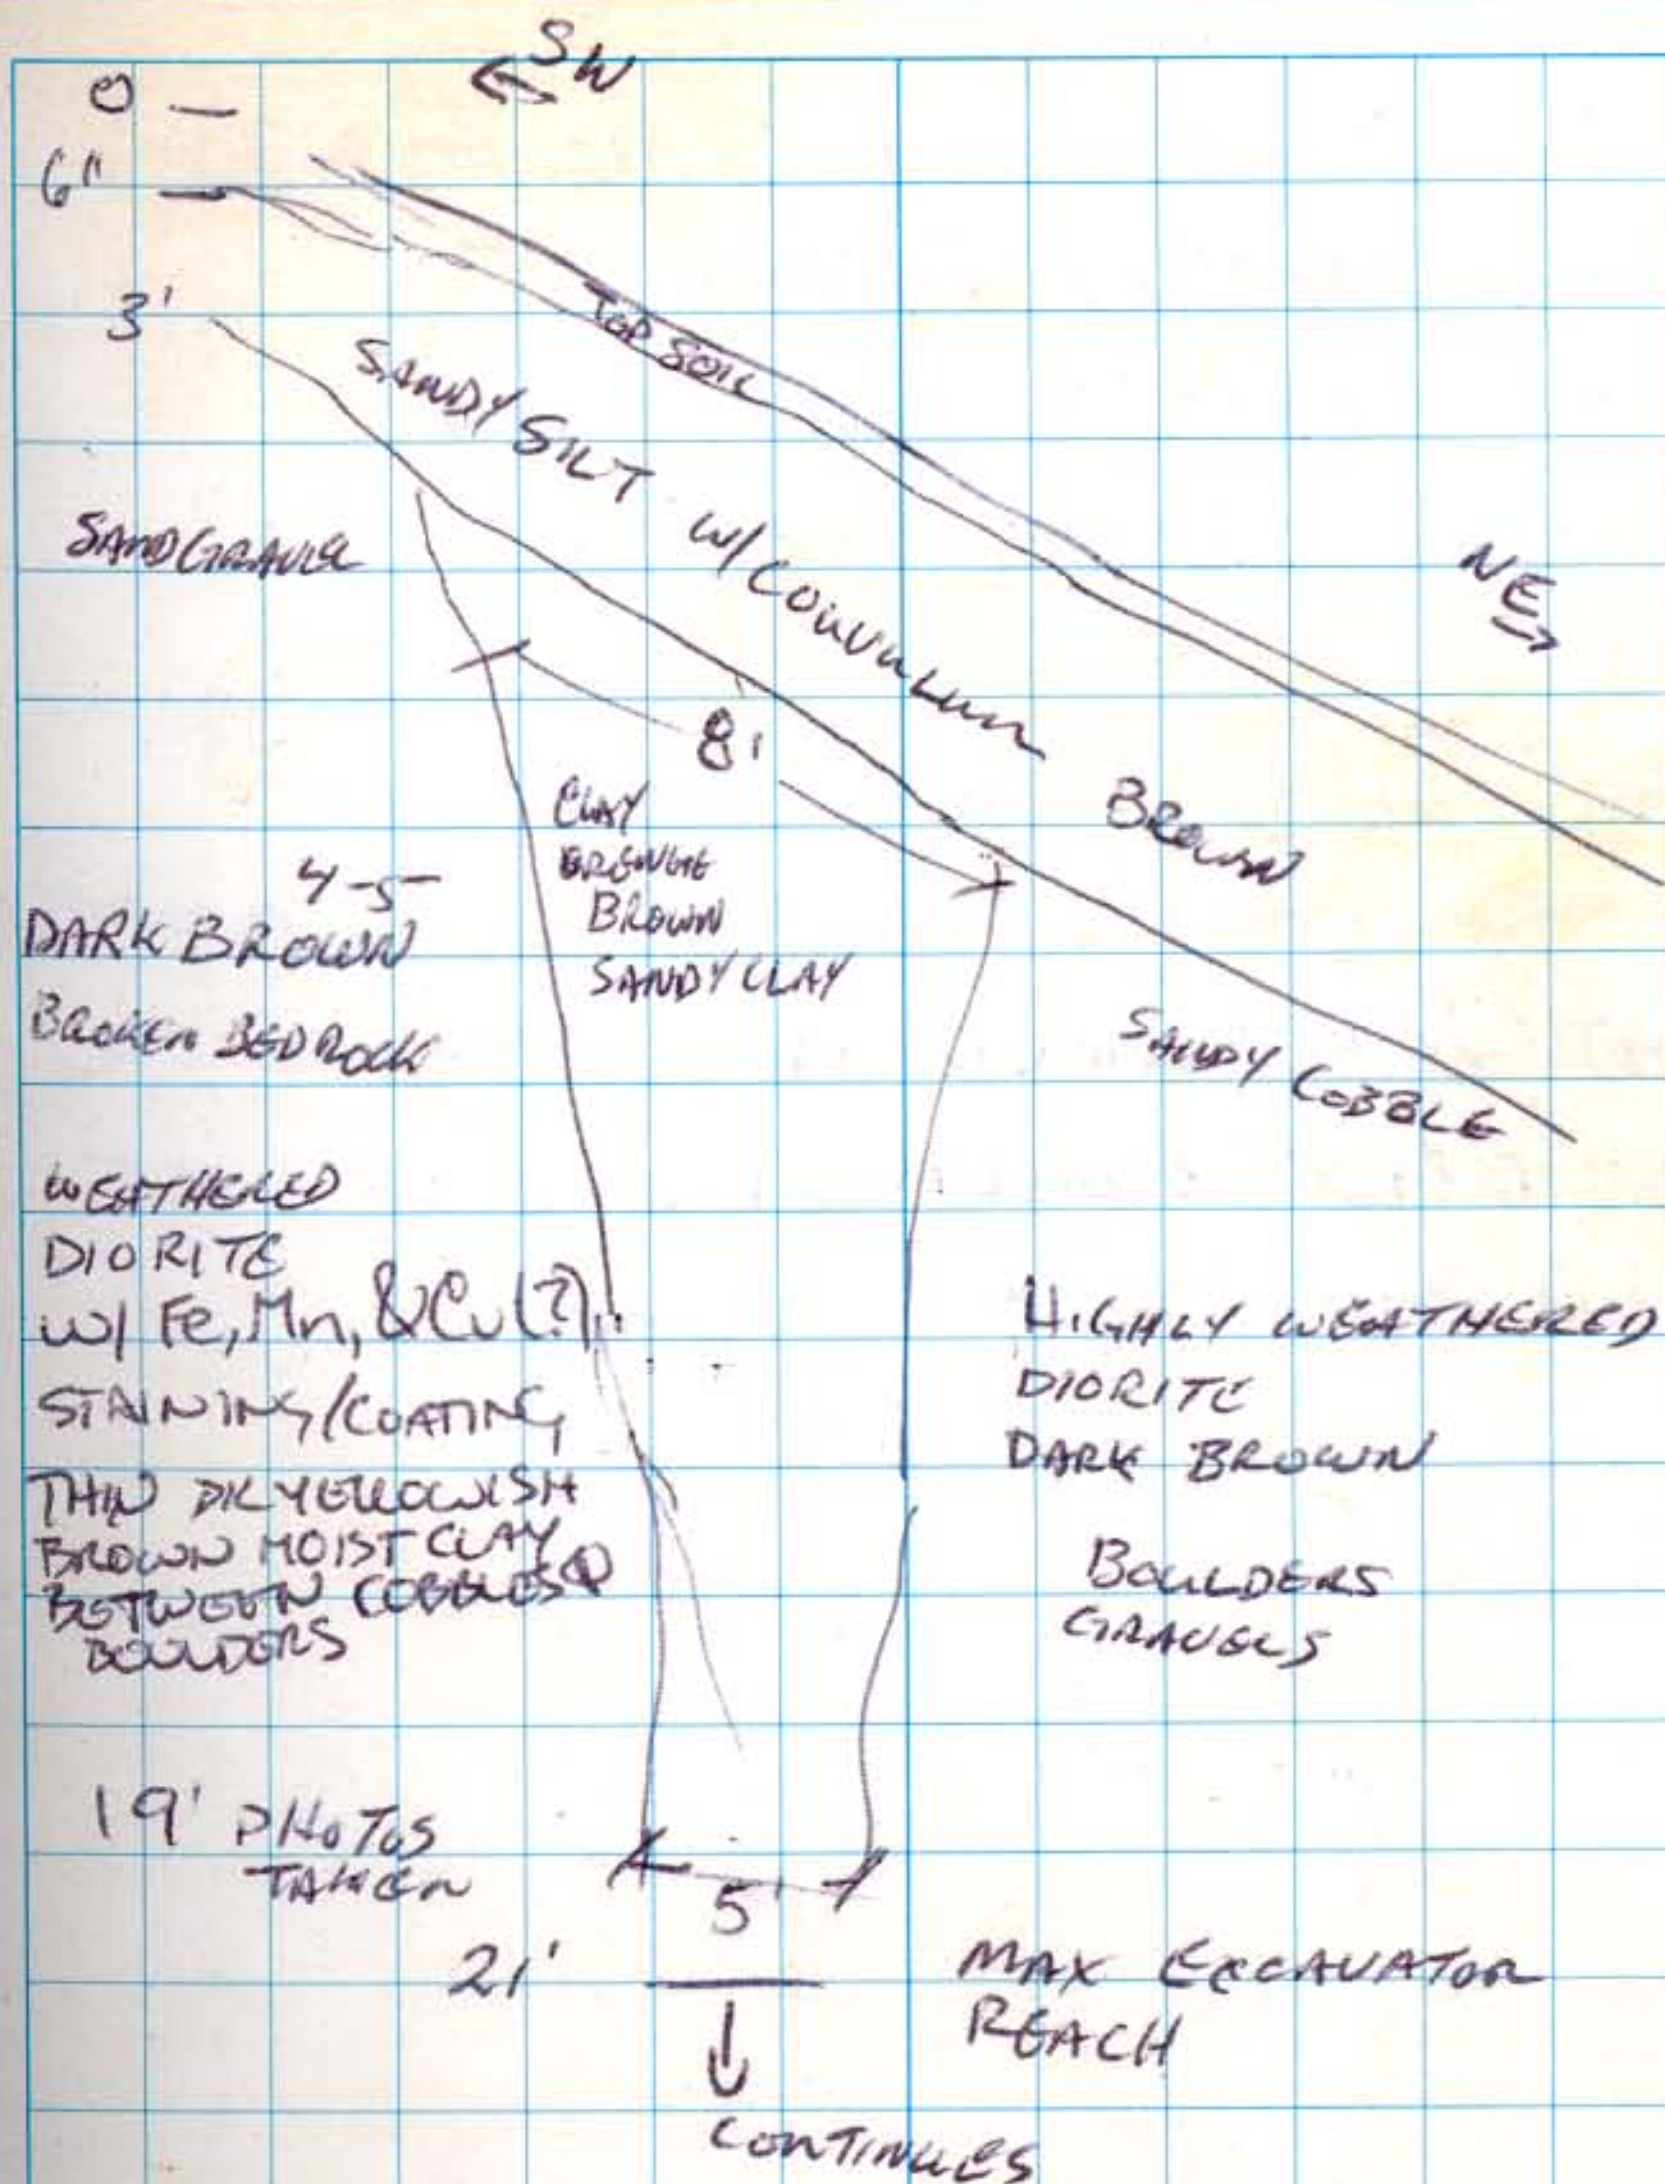 SW
0
6"
3'
TOP SOIL
SANDY SILT W/ COLLUVIUM BROWN
SAND GRAVEL
NE
8'
CLAY
ORANGE
BROWN
SANDY CLAY
4-5
DARK BROWN
BROKEN BEDROCK
SANDY COBBLE
WEATHERED
DIORITE
W/ Fe, Mn, & Cu (?)
STAINING/COATING
THIN DK YELLOWISH
BROWN MOIST CLAY
BETWEEN COBBLES &
BOULDERS
HIGHLY WEATHERED
DIORITE
DARK BROWN
BOULDERS
GRAVELS
19' PHOTOS
TAKEN
5'
21'
MAX EXCAVATOR
REACH
CONTINUES